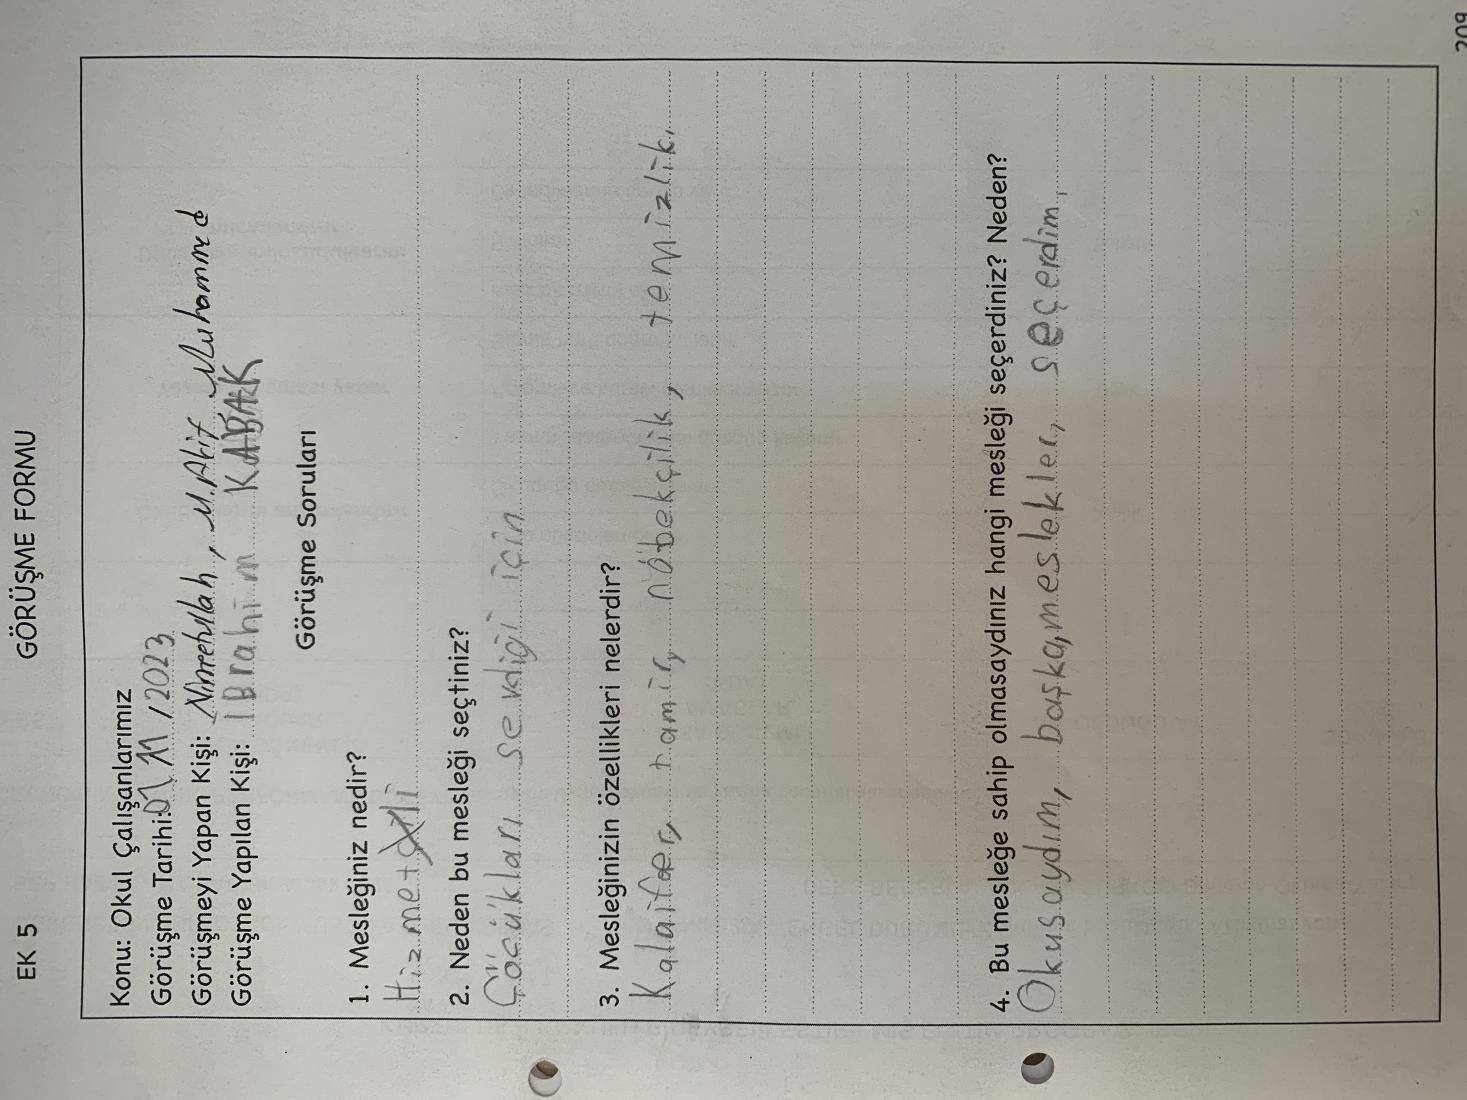 EK 5
GÖRÜŞME FORMU
Konu: Okul Çalışanlarımız
Görüşme Tarihi: 07/11/2023
Görüşmeyi Yapan Kişi: Nimetullah, M.Akif Muhammed
Görüşme Yapılan Kişi: İbrahim KABAK
Görüşme Soruları
1. Mesleğiniz nedir?
Hizmetli
2. Neden bu mesleği seçtiniz?
Çöcükları sevdiği için
3. Mesleğinizin özellikleri nelerdir?
Kalaifer, tamir, nöbekçilik, temizlik.
4. Bu mesleğe sahip olmasaydınız hangi mesleği seçerdiniz? Neden?
Okusaydım, başka, meslekler, seçerdim.
209